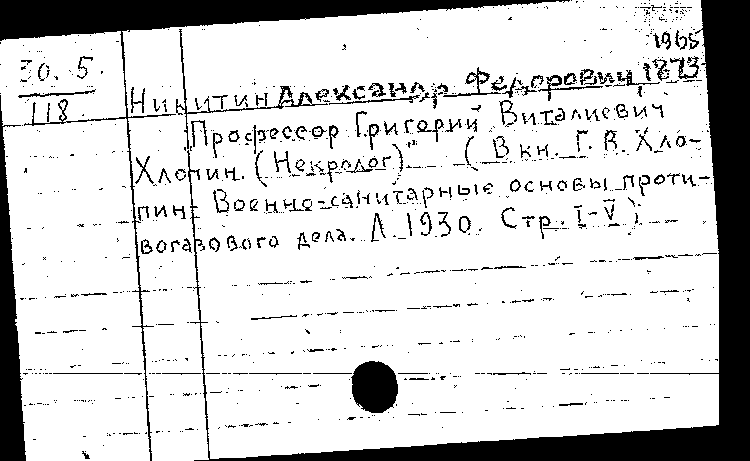 1965
30. 5.
118
Никитин Александр Федорович, 1873-
"Профессор Григорий Виталиевич
Хлопин. (Некролог)" (В кн. Г. В. Хло-
пин: Военно-санитарные основы проти-
вогазового дела. Л. 1930. Стр. I-V)